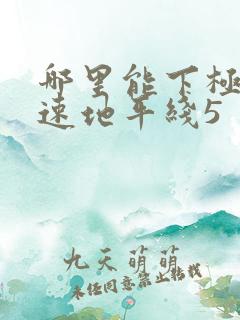 哪里能下极
速地平线5
九天萌萌
未经同意禁止转载